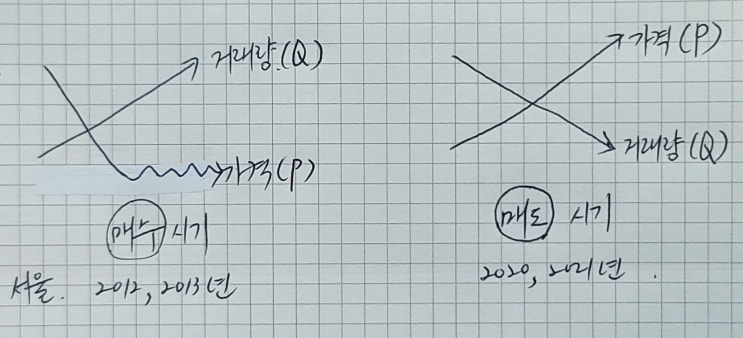 거래량(Q)
가격(P)
매수 시기
서울. 2012, 2013년
가격(P)
거래량(Q)
매도 시기
2020, 2021년.